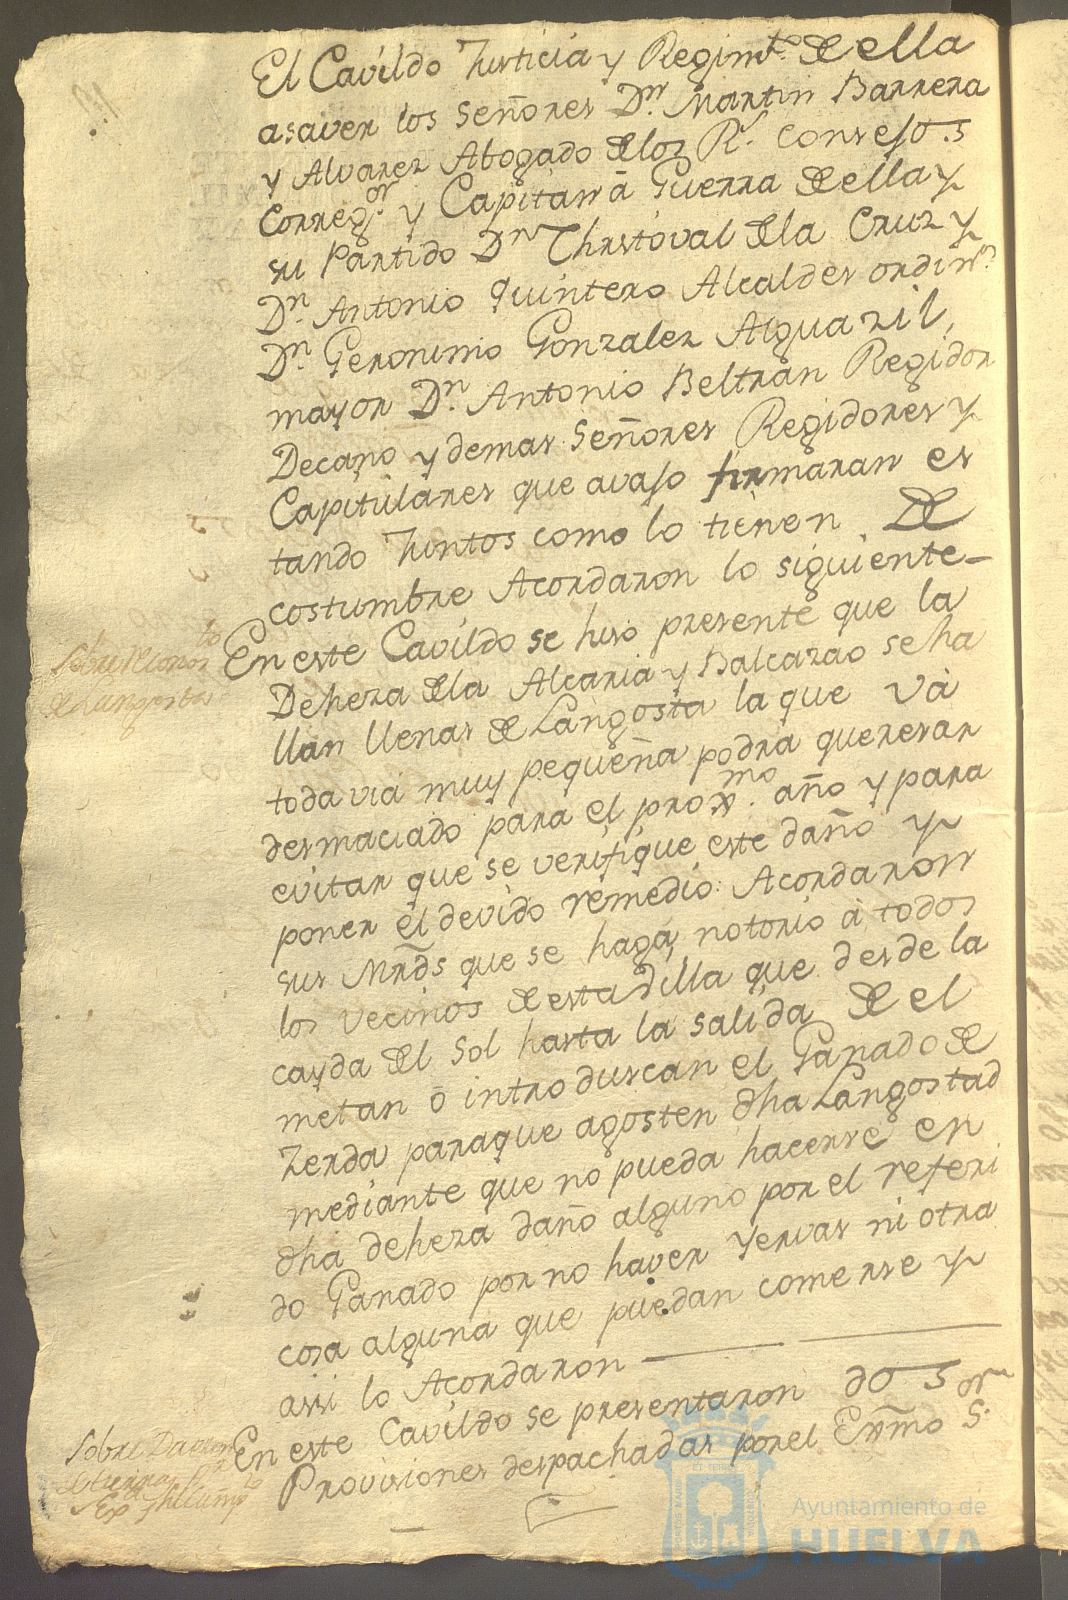 El Cavildo Justicia y Regimto. de ella
asaver los Señores Dn. Martin Barrera
y Alvarez Abogado delos Rs. Consejos
Corregor. y Capitan á Guerra de ella y
su Partido Dn Christoval dela Cruz y
Dn. Antonio Quintero Alcaldes ordinos.
Dn. Geronimo Gonzalez Alguazil,
mayor Dn. Antonio Beltran Regidor
Decano y demas Señores Regidores y
Capitulares que avajo firmaran es
tando Juntos como lo tienen de
costumbre Acordaron lo siguiente
En este Cavildo se hiso presente que la
Deheza dela Alcaria y Balcazao se ha
llan llenas de Langosta la que vá
todavia muy pequeña podra queresar
desmaciado para el proxmo. año y para
evitar que se verifique este daño y
poner el devido remedio: Acordaron
sus Mrds que se haga notorio á todos
los vecinos de esta dilla que desde la
cayda del Sol hasta la salida de el
metan ó introduscan el Ganado de
Zerda paraque agosten dha Langosta
mediante que no pueda hacerse en
dha deheza daño alguno por el referi
do Ganado por no haver Yervas ni otra
cosa alguna que puedan comerse y
assi lo Acordaron
En este Cavildo se presentaron dos
Provisiones despachadas porel Exmo Sor.
Sobre
de Langosta
Sobre
Ayuntamiento de
HUELVA